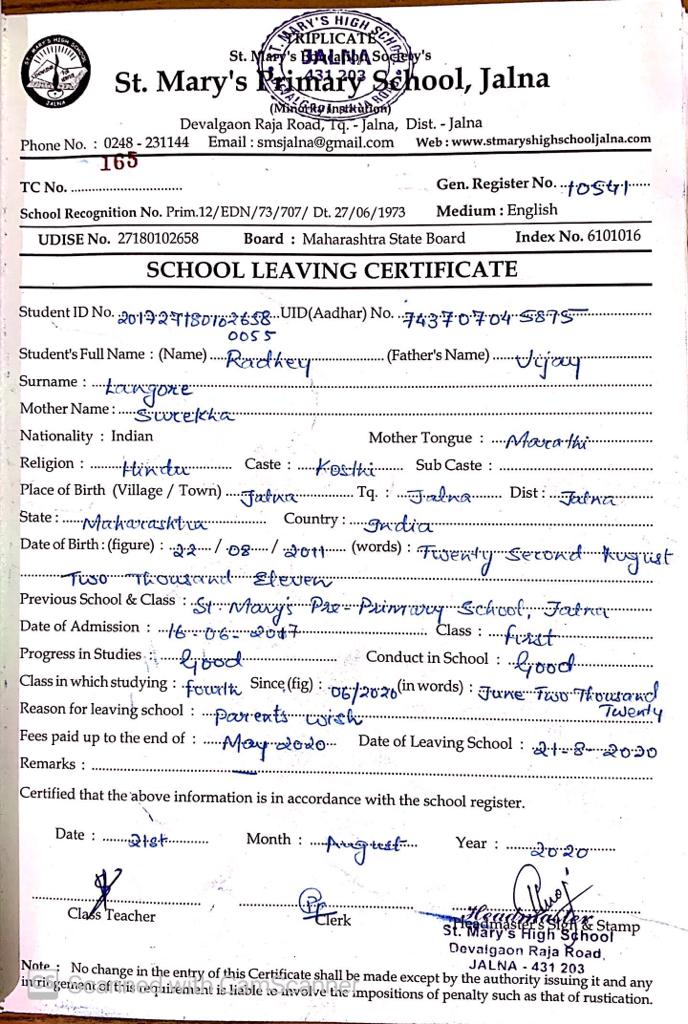 TRIPLICATE
St. Mary's Education Society's
St. Mary's Primary School, Jalna
(Minority Institution)
ST. MARY'S HIGH SCHOOL
JALNA
431 203
Devalgaon Raja Road, Tq. - Jalna, Dist. - Jalna
Phone No. : 0248 - 231144 Email : smsjalna@gmail.com Web : www.stmaryshighschooljalna.com
165
TC No. ............................... Gen. Register No. 10541
School Recognition No. Prim.12/EDN/73/707/ Dt. 27/06/1973 Medium : English
UDISE No. 27180102658 Board : Maharashtra State Board Index No. 6101016
SCHOOL LEAVING CERTIFICATE
Student ID No. 201727180102658 UID(Aadhar) No. 74370704 5875
0055
Student's Full Name : (Name) Radhey (Father's Name) Vijay
Surname : Langore
Mother Name : Surekha
Nationality : Indian Mother Tongue : Marathi
Religion : Hindu Caste : Kosthi Sub Caste :
Place of Birth (Village / Town) Jalna Tq. : Jalna Dist : Jalna
State : Maharashtra Country : India
Date of Birth : (figure) : 22 / 08 / 2011 (words) : Twenty Second August
Two Thousand Eleven
Previous School & Class : St. Mary's Pre-Primary School, Jalna
Date of Admission : 16-06-2017 Class : first
Progress in Studies : Good Conduct in School : Good
Class in which studying : fourth Since (fig) : 06/2020 (in words) : June Two Thousand
Twenty
Reason for leaving school : Parents wish
Fees paid up to the end of : May 2020 Date of Leaving School : 21-8-2020
Remarks :
Certified that the above information is in accordance with the school register.
Date : 21st Month : August Year : 2020
Class Teacher Clerk Headmaster's Sign & Stamp
Headmaster
St. Mary's High School
Devalgaon Raja Road,
JALNA - 431 203
Note : No change in the entry of this Certificate shall be made except by the authority issuing it and any
infringement of this requirement is liable to involve the impositions of penalty such as that of rustication.
CS Scanned with CamScanner